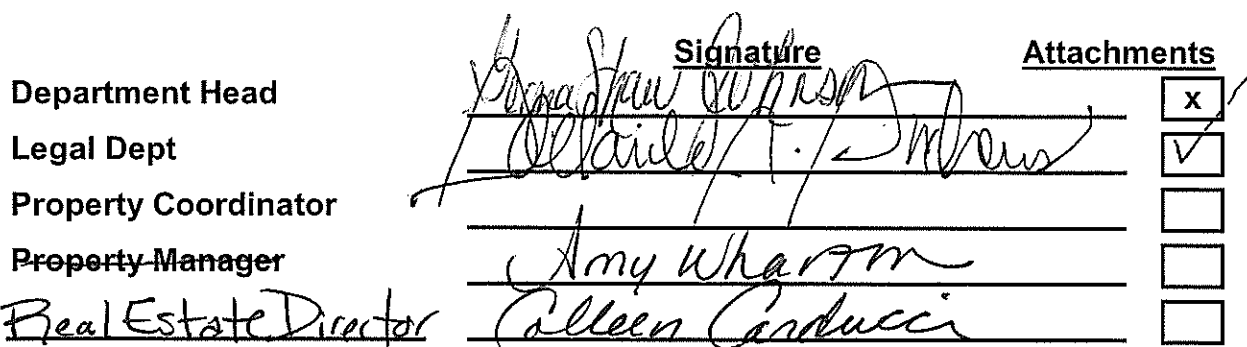 Signature Attachments
Department Head x
Legal Dept ✓
Property Coordinator
Property Manager Amy Wharton
Real Estate Director Colleen Carducci